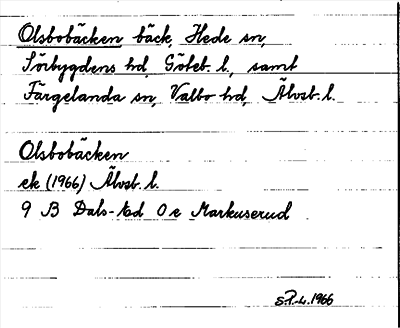 Olsbobäcken bäck, Hede sn,
Sörbygdens hd, Göteb. l., samt
Färgelanda sn, Valbo hd, Älvsb. l.
Olsbobäcken
ek (1966) Älvsb. l.
9 B Dals-Ed 0 e Markuserud
S.P.-L. 1966